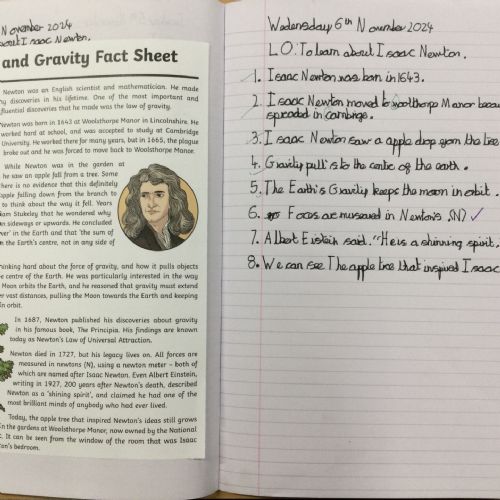 November 2024
about Isaac Newton.
and Gravity Fact Sheet
Newton was an English scientist and mathematician. He made
ny discoveries in his lifetime. One of the most important and
fluential discoveries that he made was the law of gravity.
Newton was born in 1643 at Woolsthorpe Manor in Lincolnshire. He
worked hard at school, and was accepted to study at Cambridge
University. He worked there for many years, but in 1665, the plague
broke out and he was forced to move back to Woolsthorpe Manor.
While Newton was in the garden at
he saw an apple fall from a tree. Some
here is no evidence that this definitely
apple falling down from the branch to
to think about the way it fell. Years
am Stukeley that he wondered why
n sideways or upwards. He concluded
er' in the Earth and that 'the sum of
n the Earth's centre, not in any side of
hinking hard about the force of gravity, and how it pulls objects
e centre of the Earth. He was particularly interested in the way
Moon orbits the Earth, and he reasoned that gravity must extend
er vast distances, pulling the Moon towards the Earth and keeping
in orbit.
In 1687, Newton published his discoveries about gravity
in his famous book, The Principia. His findings are known
today as Newton's Law of Universal Attraction.
Newton died in 1727, but his legacy lives on. All forces are
measured in newtons (N), using a newton meter – both of
which are named after Isaac Newton. Even Albert Einstein,
writing in 1927, 200 years after Newton's death, described
Newton as a 'shining spirit', and claimed he had one of the
most brilliant minds of anybody who had ever lived.
Today, the apple tree that inspired Newton's ideas still grows
in the gardens at Woolsthorpe Manor, now owned by the National
t. It can be seen from the window of the room that was Isaac
ton's bedroom.
Wednesday 6th November 2024
L.O: To learn about Isaac Newton.
1. Isaac Newton was born in 1643.
2. Isaac Newton moved to woolthorpe Manor becau
spreaded in cambrige.
3. I saac Newton saw a apple drop from the tree
4. Gravity pull is to the centre of the earth.
5. The Earth's Gravity keeps the moon in orbit.
6. Forces are museured in Newton's (N)
7. Albert Eistein said. "He is a shinning spirit.
8. We can see The apple tree that inspired Isaac